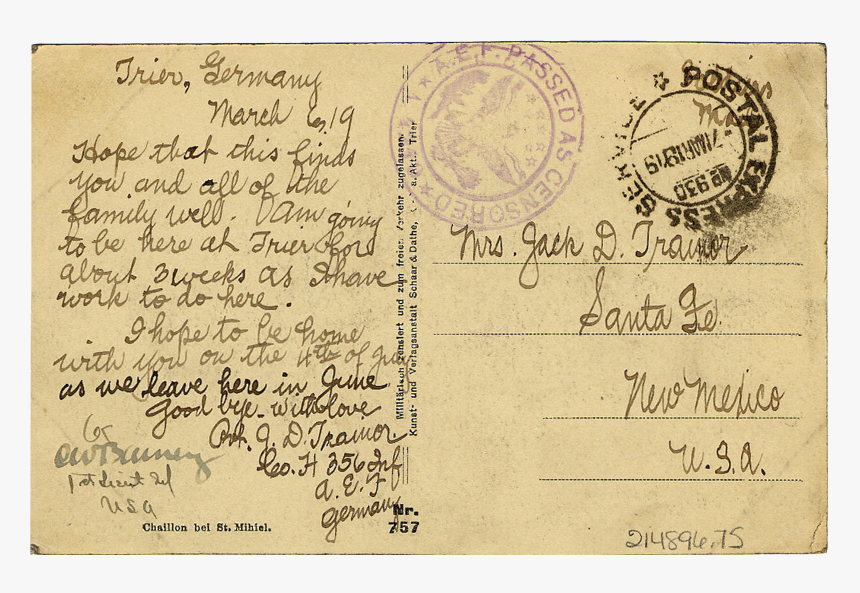 Trier, Germany
March 6, 19
Hope that this finds
you and all of the
family well. I am going
to be here at Trier for
about 3 weeks as I have
work to do here.
I hope to be home
with you on the 4th of July
as we leave here in June
Good bye - with love
Pvt. J. D. Trainor
Co. H 356 Inf
A. E. F
Germany
1st Lieut Inf
USA
Chaillon bei St. Mihiel.
Nr.
757
Militärisch zensiert und zum freien Verkehr zugelassen.
Kunst- und Verlagsanstalt Schaar & Dathe, a. Akt. Trier
A.E.F. PASSED AS CENSORED
POSTAL EXPRESS SERVICE
MAR 1919
No. 930
Mrs. Jack D. Trainor
Santa Fe.
New Mexico
U.S.A.
214896.75